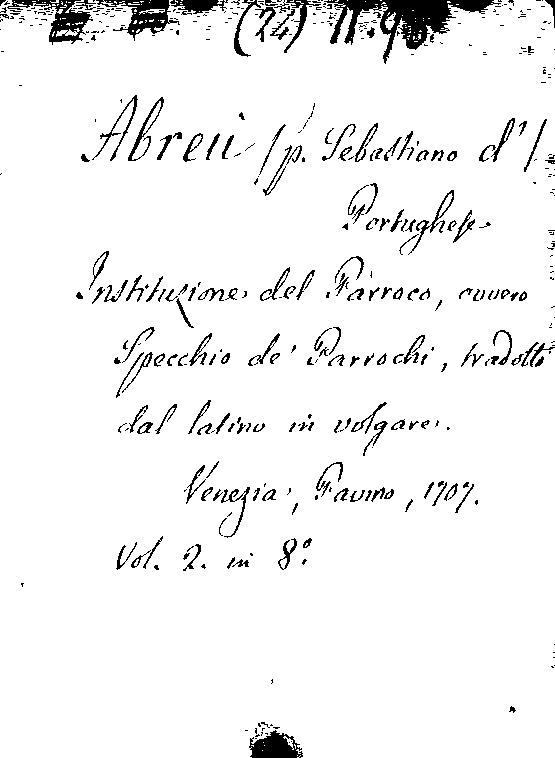 (24) 11.9
Abreu /p. Sebastiano d'/
Portughese
Instituzione del Parroco, ovvero
Specchio de' Parrochi, tradotto
dal latino in volgare.
Venezia, 1707.
Vol. 2. in 8.º